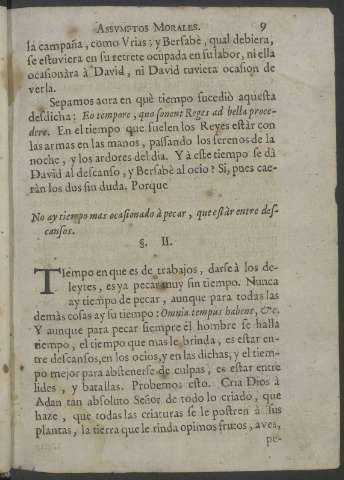 ASSVMPTOS MORALES. 9
la campaña, como Vrias; y Bersabè, qual debiera,
se estuviera en su retrete ocupada en su labor, ni ella
ocasionàra à David, ni David tuviera ocasion de
verla.
Sepamos aora en què tiempo sucediò aquesta
desdicha: Eo tempore, quo solent Reges ad bella proce-
dere. En el tiempo que suelen los Reyes estàr con
las armas en las manos, passando los serenos de la
noche, y los ardores del dia. Y à este tiempo se dà
David al descanso, y Bersabè al ocio? Si, pues cae-
ràn los dos sin duda. Porque
No ay tiempo mas ocasionado à pecar, que estàr entre des-
cansos.
§. II.
TIempo en que es de trabajos, darse à los de-
leytes, es ya pecar muy sin tiempo. Nunca
ay tiempo de pecar, aunque para todas las
demàs cosas ay su tiempo: Omnia tempus habent, &c.
Y aunque para pecar siempre el hombre se halla
tiempo, el tiempo que mas le brinda, es estar en-
tre descansos, en los ocios, y en las dichas, y el tiem-
po mejor para abstenerse de culpas, es estar entre
lides, y batallas. Probemos esto. Cria Dios à
Adan tan absoluto Señor de todo lo criado, que
haze, que todas las criaturas se le postren à sus
plantas, la tierra que le rinda opimos frutos, aves,
pe-